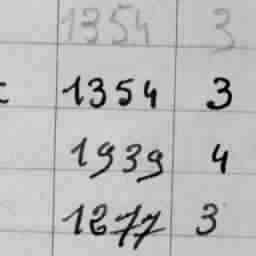 1354 3
1354 3
1939 4
1277 3